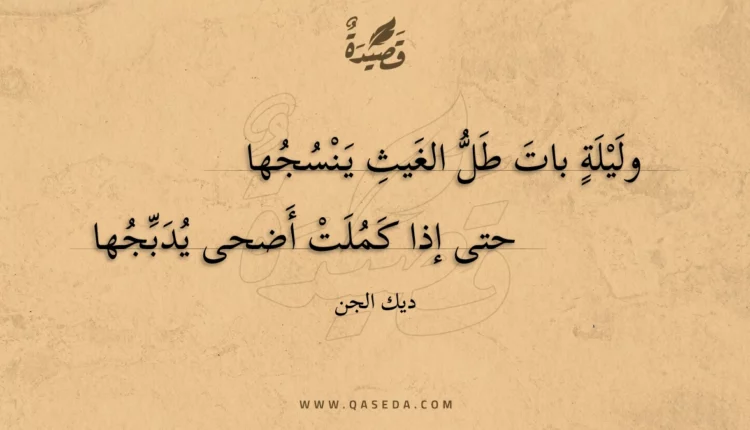 قَصِيدَةٌ
ولَيْلَةٍ باتَ طَلُّ الغَيثِ يَنْسُجُها
حتى إذا كَمُلَتْ أَضحى يُدَبِّجُها
ديك الجن
WWW.QASEDA.COM